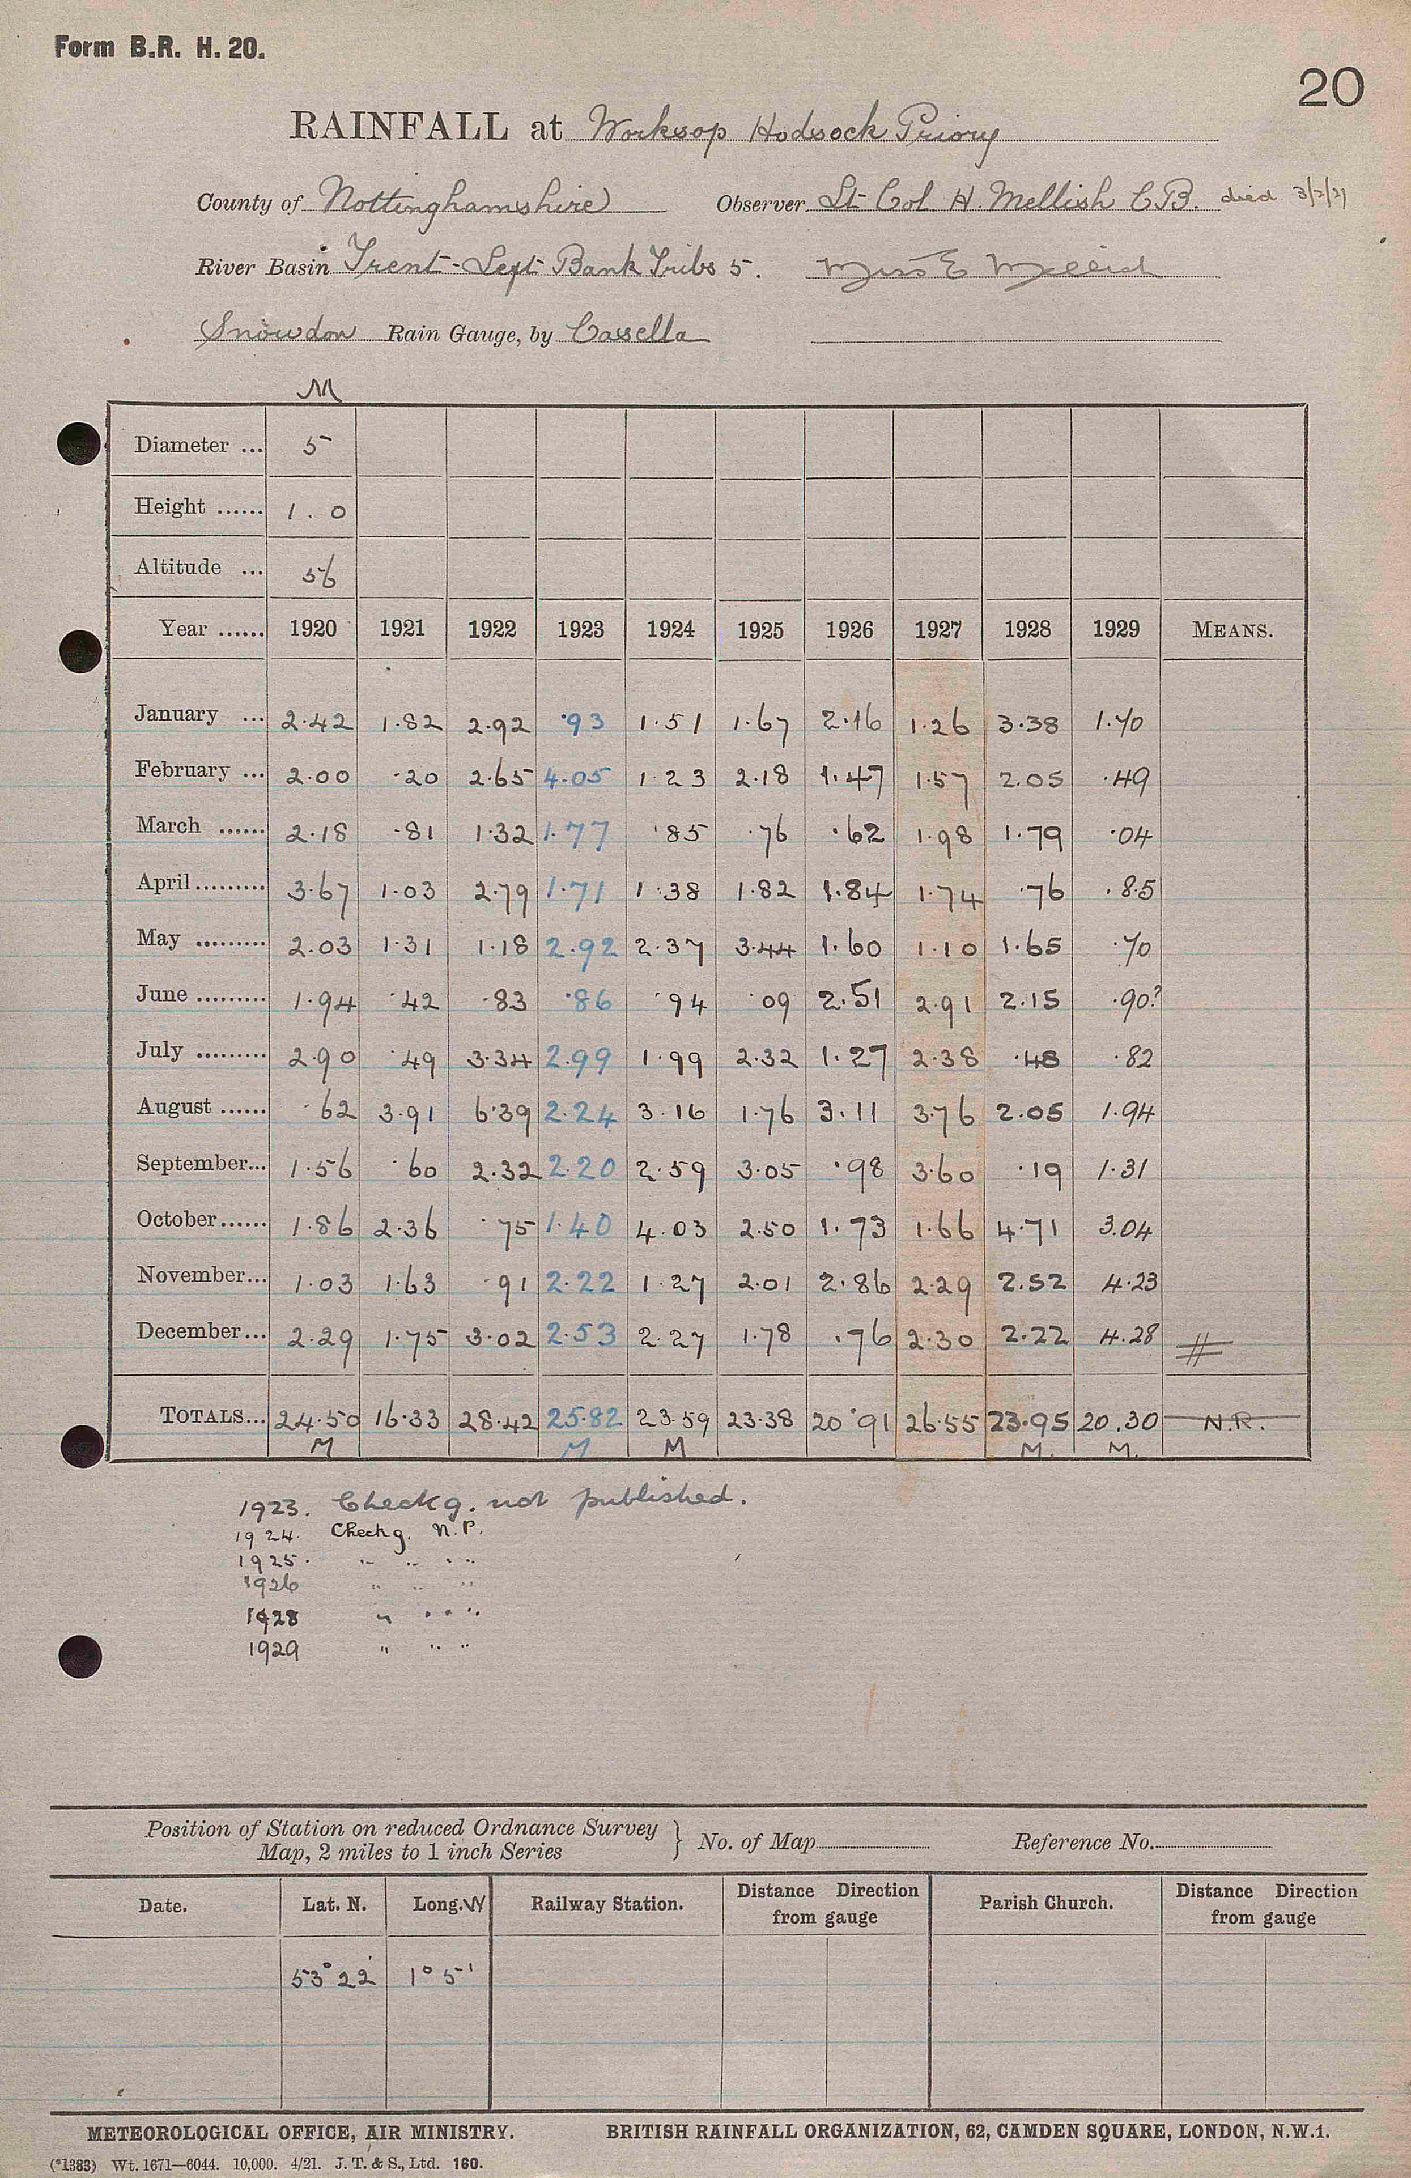 Form B.R. H. 20.
20
RAINFALL at Worksop Hodsock Priory
County of Nottinghamshire Observer Lt Col H. Mellish C.B. died 3/2/29
River Basin Trent - Left Bank Tribs 5. Miss E Mellish
Snowdon Rain Gauge, by Casella
M
Diameter ... 5
Height ...... 1 . 0
Altitude ... 56
Year ...... 1920 1921 1922 1923 1924 1925 1926 1927 1928 1929 MEANS.
January ... 2.42 1.82 2.92 .93 1.51 1.67 2.16 1.26 3.38 1.70
February ... 2.00 .20 2.65 4.05 1.23 2.18 1.47 1.57 2.05 .49
March ...... 2.18 .81 1.32 1.77 .85 .76 .62 1.98 1.79 .04
April ......... 3.67 1.03 2.79 1.71 1.38 1.82 1.84 1.74 .76 .85
May ......... 2.03 1.31 1.18 2.92 2.37 3.44 1.60 1.10 1.65 .70
June ......... 1.94 .42 .83 .86 .94 .09 2.51 2.91 2.15 .90?
July ......... 2.90 .49 3.34 2.99 1.99 2.32 1.27 2.38 .48 .82
August ...... .62 3.91 6.39 2.24 3.16 1.76 3.11 3.76 2.05 1.94
September... 1.56 .60 2.32 2.20 2.59 3.05 .98 3.60 .19 1.31
October...... 1.86 2.36 .75 1.40 4.03 2.50 1.73 1.66 4.71 3.04
November... 1.03 1.63 .91 2.22 1.27 2.01 2.86 2.29 2.52 4.23
December... 2.29 1.75 3.02 2.53 2.27 1.78 .76 2.30 2.22 4.28
TOTALS... 24.50 16.33 28.42 25.82 23.59 23.38 20.91 26.55 23.95 20.30 N.R.
M M M M. M.
1923. Check g. not published.
1924. Check g. N.P.
1925. " " " "
1926 " " "
1928 " " " "
1929 " " "
Position of Station on reduced Ordnance Survey
Map, 2 miles to 1 inch Series } No. of Map Reference No.
Date. Lat. N. Long. W Railway Station. Distance Direction from gauge Parish Church. Distance Direction from gauge
53° 22' 1° 5'
METEOROLOGICAL OFFICE, AIR MINISTRY. BRITISH RAINFALL ORGANIZATION, 62, CAMDEN SQUARE, LONDON, N.W.1.
(*1383) Wt. 1671—6044. 10,000. 4/21. J. T. & S., Ltd. 160.